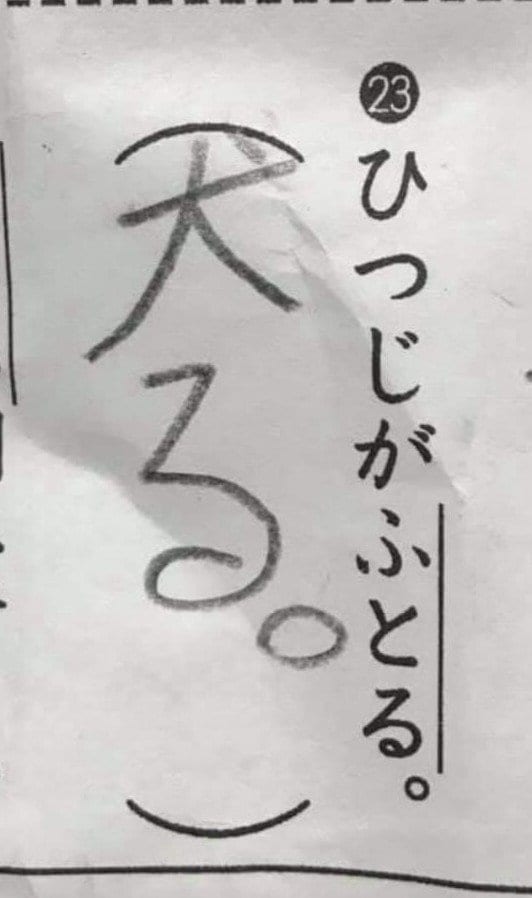 ㉓ひつじがふとる。
(犬る。)